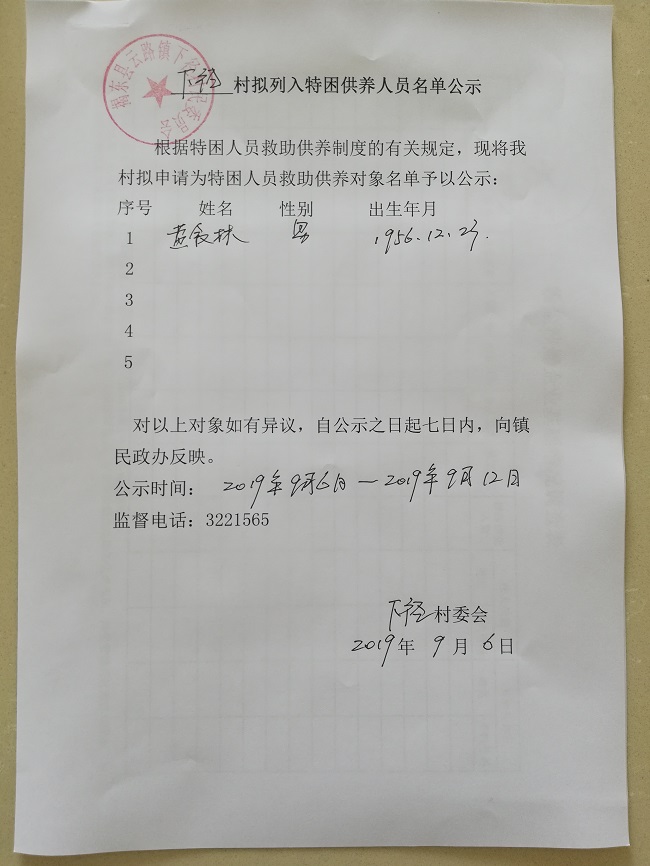 揭东县云路镇下径村民委员会
下径村拟列入特困供养人员名单公示
根据特困人员救助供养制度的有关规定，现将我
村拟申请为特困人员救助供养对象名单予以公示：
序号 姓名 性别 出生年月
1 林 男 1956.12.27.
2
3
4
5
对以上对象如有异议，自公示之日起七日内，向镇
民政办反映。
公示时间： 2019年9月6日—2019年9月12日
监督电话：3221565
下径村委会
2019年 9 月 6 日